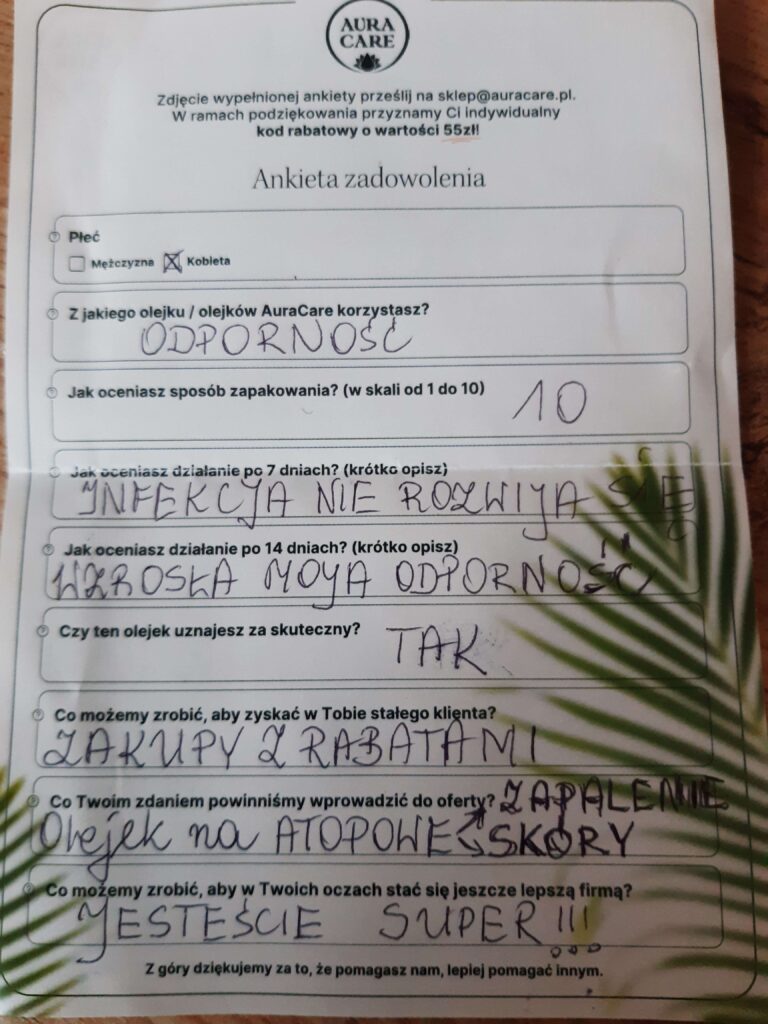 AURA
CARE
Zdjęcie wypełnionej ankiety prześlij na sklep@auracare.pl.
W ramach podziękowania przyznamy Ci indywidualny
kod rabatowy o wartości 55zł!
Ankieta zadowolenia
Płeć
Mężczyzna Kobieta
Z jakiego olejku / olejków AuraCare korzystasz?
ODPORNOŚĆ
Jak oceniasz sposób zapakowania? (w skali od 1 do 10)
10
Jak oceniasz działanie po 7 dniach? (krótko opisz)
INFEKCJA NIE ROZWIJA SIĘ
Jak oceniasz działanie po 14 dniach? (krótko opisz)
WZROSŁA MOJA ODPORNOŚĆ
Czy ten olejek uznajesz za skuteczny?
TAK
Co możemy zrobić, aby zyskać w Tobie stałego klienta?
ZAKUPY Z RABATAMI
Co Twoim zdaniem powinniśmy wprowadzić do oferty? ZAPALENIE
Olejek na ATOPOWE SKÓRY
Co możemy zrobić, aby w Twoich oczach stać się jeszcze lepszą firmą?
JESTEŚCIE SUPER!!!
Z góry dziękujemy za to, że pomagasz nam, lepiej pomagać innym.